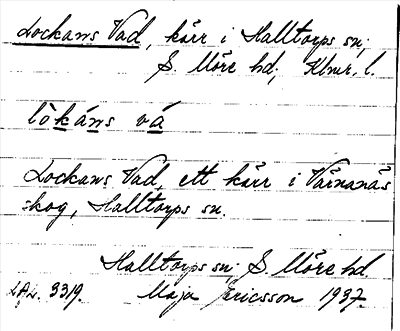 Lockans Vad, kärr i Halltorps sn;
S. Möre hd; Klmr. l.
lòkáns vá
Lockans Vad, ett kärr i Värnanäs
skog, Halltorps sn.
Halltorps sn; S. Möre hd.
3319. Maja Ericsson 1937.